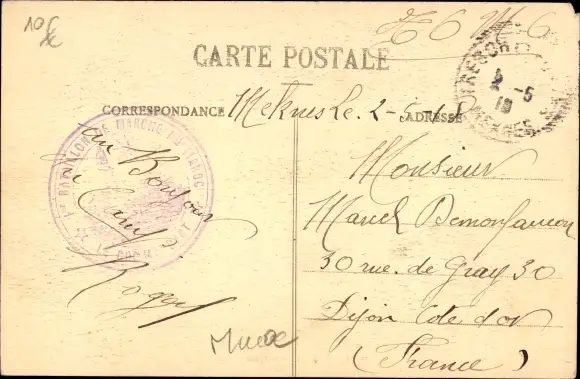 10€
CARTE POSTALE
CORRESPONDANCE
ADRESSE
Meknes Le 2-5-18
TRESOR
2-5
18
MEKNES
BATAILLON DE MARCHE DU MAROC
un Bonjour
du Camp
Roger
Monsieur
Marcel Demonfaucon
30 rue. de Gray 30
Dijon Cote d'or
(France)
Maroc